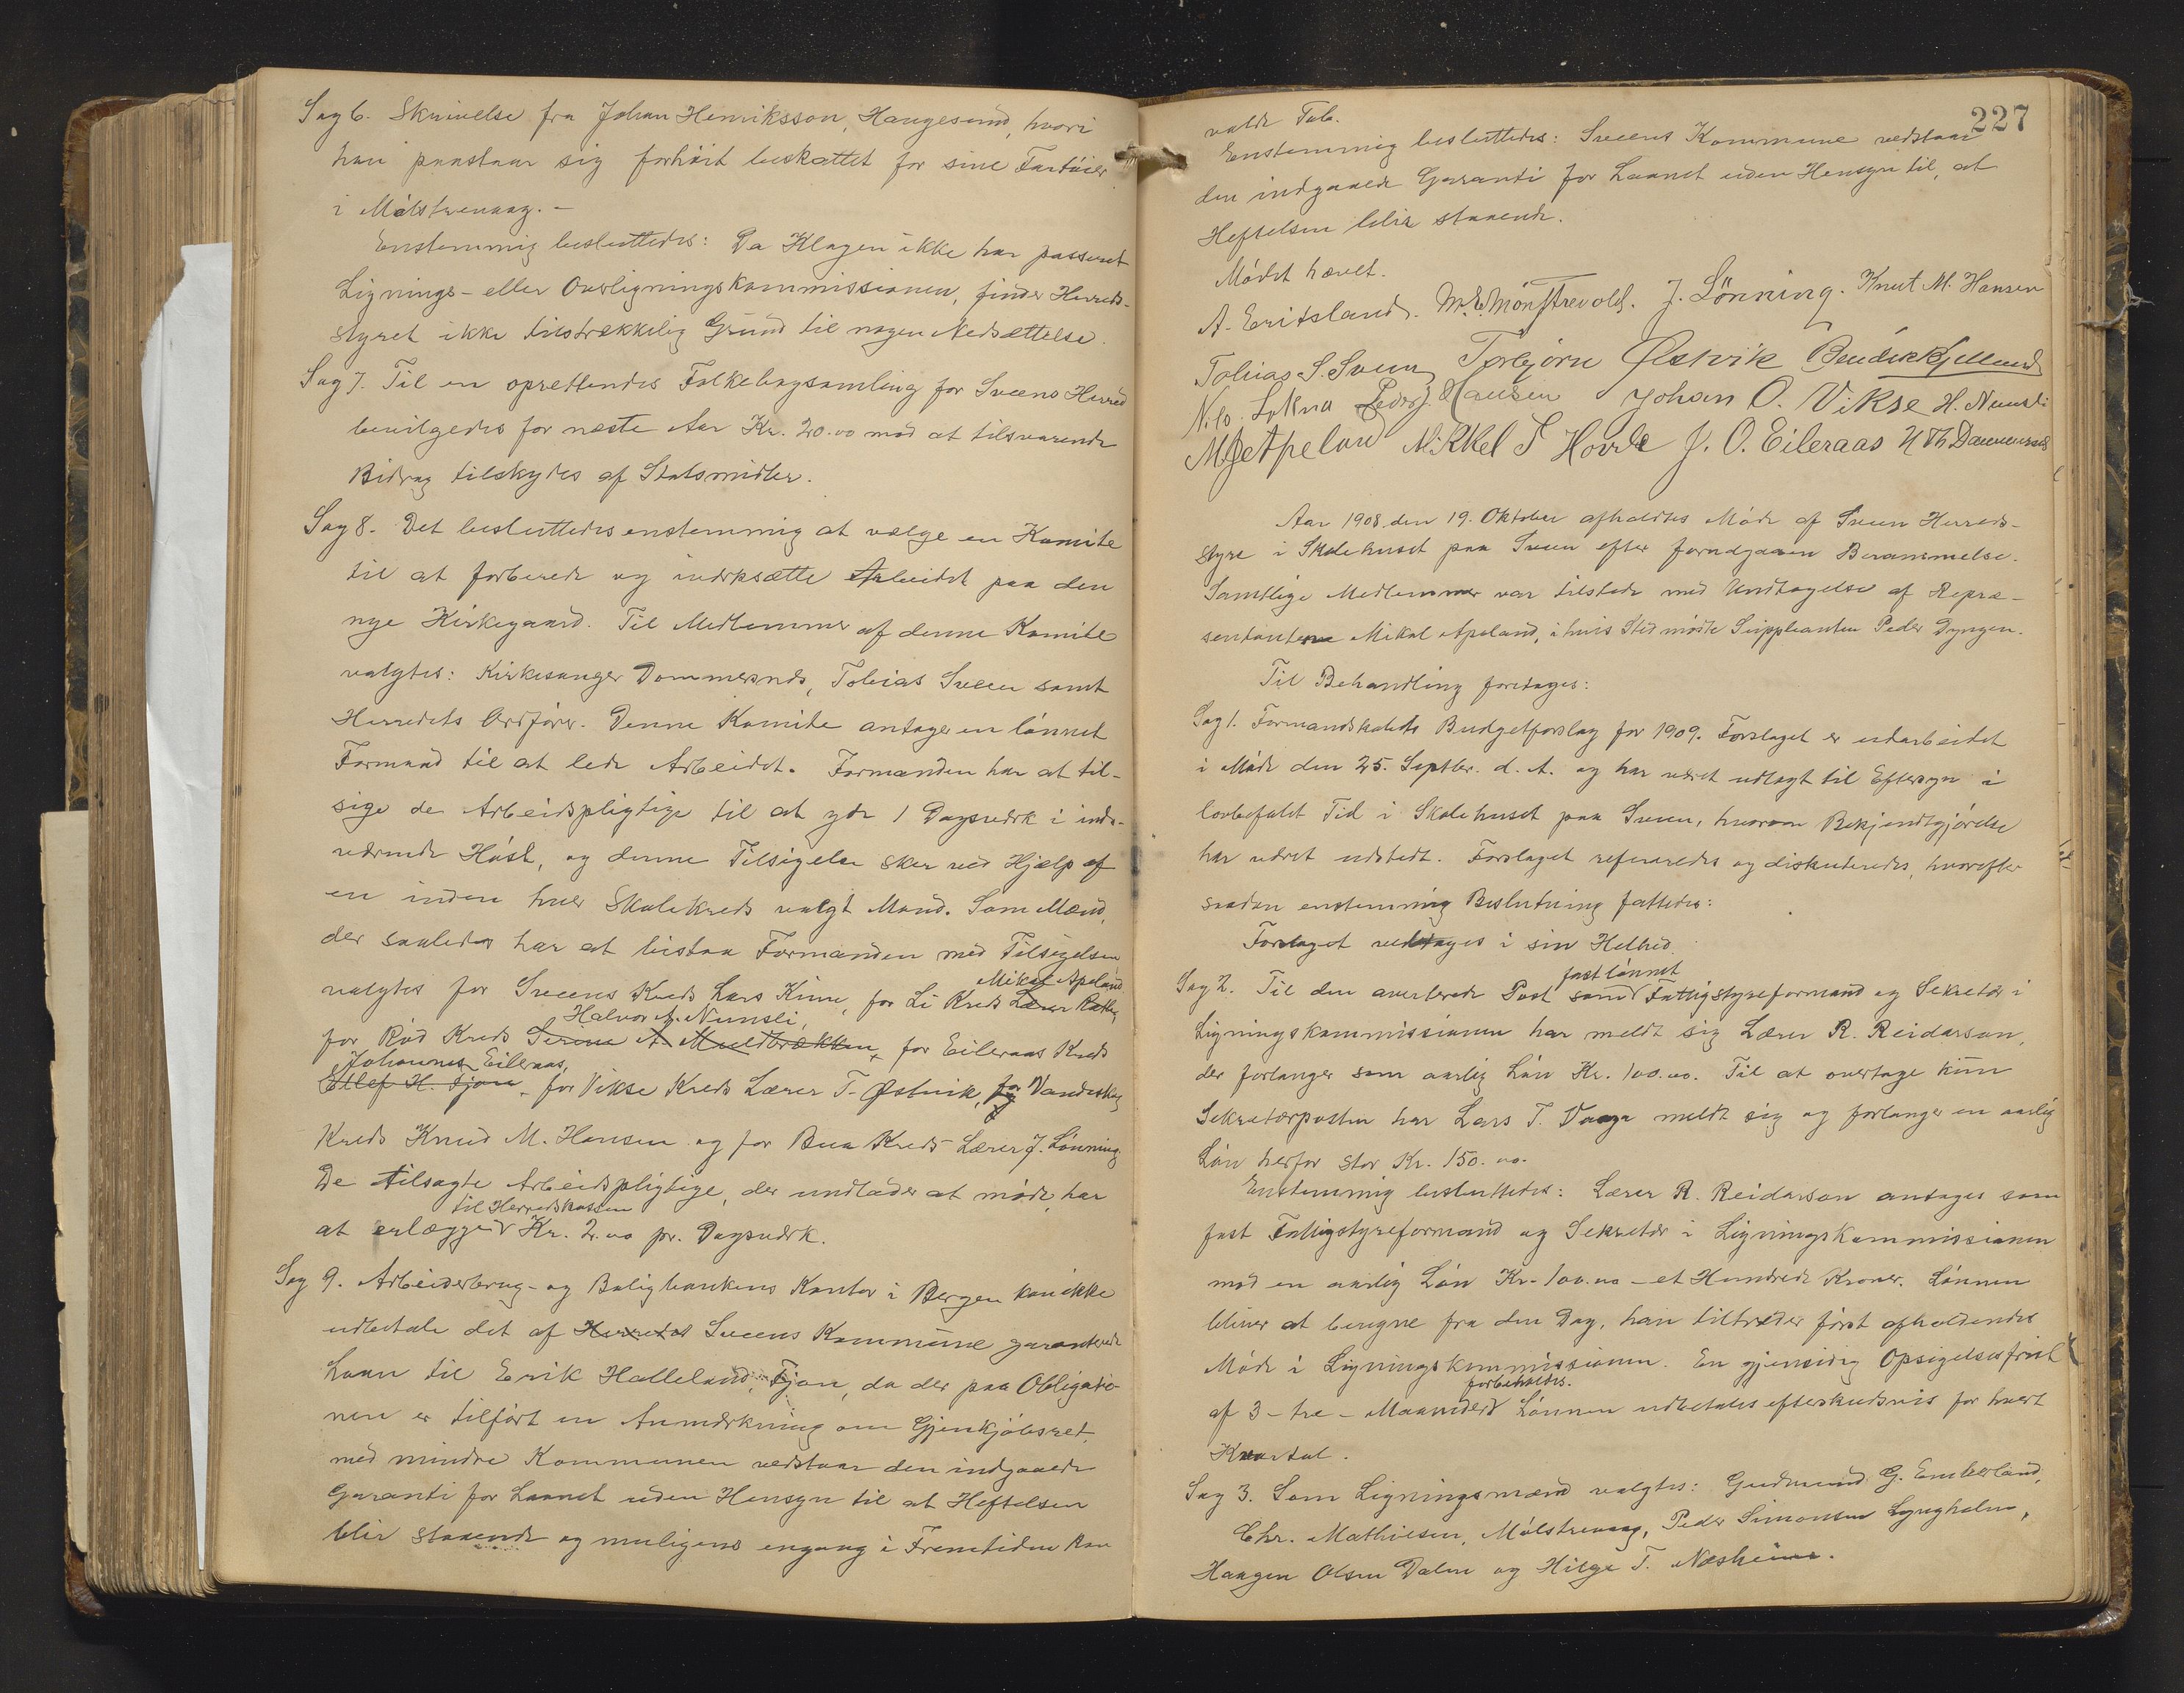 Sag 6. Skrivelse fra Johan Henriksson, Haugesund, hvori
han paastaar sig forhöit beskattet for sine Fartöier
i Mölstrevaag. -
Enstemmig besluttedes: Da Klagen ikke har passeret
Lignings- eller Overligningskommissionen, finder Herreds-
styret ikke tilstrækkelig Grund til nogen Nedsættelse.
Sag 7. Til en oprettendes Folkebogsamling for Sveens Herred
bevilgedes for næste Aar Kr. 20.00 mod at tilsvarende
Bidrag tilskydes af Statsmidler.
Sag 8. Det besluttedes enstemmig at vælge en Komite
til at forberede og iverksætte Arbeidet paa den
nye Kirkegaard. Til Medlemmer af denne Komite
valgtes: Kirkesanger Dommersnes, Tobias Sveen samt
Herredets Ordförer. Denne Komite antager en lönnet
Formand til at lede Arbeidet. Formanden har at til-
sige de Arbeidspligtige til at yde 1 Dagsverk i inde-
værende Höst, og denne Tilsigelse sker ved Hjælp af
en inden hver Skolekreds valgt Mand. Som Mænd,
der saaledes har at bistaa Formanden med Tilsigelsen
Mikal Apeland
valgtes for Sveens Kreds Lars Kinn, for Li Kreds Lærer
Halvor A. Nunsli,
for Röd Kreds Serine A. Muldbrækken, for Eileraas Kreds
Johannes Eileraas,
Etlef H. Fjon, for Vikse Kreds Lærer T. Østvik, for Vandeskog
Kreds Knud M. Hansen og for Bua Kreds Lærer J. Lönning
De tilsagte Arbeidspligtige, der undlader at möde, har
til Herredskassen
at erlægge Kr. 2.00 pr. Dagsverk.
Sag 9. Arbeiderbrug- og Boligbankens Kontor i Bergen kan ikke
udbetale det af Herredet Sveens Kommune garanterede
Laan til Erik Halleland, Fjon, da der paa Obligatio-
nen er tilfört en Anmerkning om Gjenkjöbsret,
med mindre Kommunen vedstaar den indgaaede
Garanti for Laanet uden Hensyn til at Heftelsen
blir staaende og muligens engang i Fremtiden kan
227
volde Tab.
Enstemmig besluttedes: Sveens Kommune vedstaar
den indgaaede Garanti for Laanet uden Hensyn til, at
Heftelsen blir staaende.
Mödet hævet.
A. Eritsland. M. E. Mönstrevold. J. Lönning. Knut M. Hansen
Tobias S. Sveen Torbjörn Østvik Bendik Kjelland
Nils Lokna Peder J. Hansen Johan O. Vikse H. Nunsli
M J Apeland Mikkel S Hovde J. O. Eileraas N Th Dommersnes
Aar 1908 den 19. Oktober afholdtes Möde af Sveen Herreds-
styre i Skolehuset paa Sveen efter forudgaaen Berammelse.
Samtlige Medlemmer var tilstede med Undtagelse af Repræ-
sentanten Mikal Apeland, i hvis Sted mödte Suppleanten Peder Dyngen.
Til Behandling foretages:
Sag 1. Formandskabets Budgetforslag for 1909. Forslaget er udarbeidet
i Möde den 25. Septbr. d. A. og har været udlagt til Eftersyn i
lovbefalet Tid i Skolehuset paa Sveen, hvorom Bekjendtgjörelse
har været udstedt. Forslaget refereredes og diskuteredes, hvorefter
saadan enstemmig Beslutning fattedes:
Forslaget vedtages i sin Helhed.
fastlönnet
Sag 2. Til den averterede Post som Fattigstyreformand og Sekretær i
Ligningskommissionen har meldt sig Lærer R. Reidarson,
der forlanger som aarlig Lön Kr. 100.00. Til at overtage kun
Sekretærposten har Lars T. Vaage meldt sig og forlanger en aarlig
Lön herfor stor Kr. 150.00.
Enstemmig besluttedes: Lærer R. Reidarson antages som
fast Fattigstyreformand og Sekretær i Ligningskommissionen
mod en aarlig Lön Kr. 100.00 - et Hundrede Kroner. Lönnen
bliver at beregne fra den Dag, han tiltræder först afholdendes
Möde i Ligningskommissionen. En gjensidig Opsigelsesfrist
forbeholdes.
af 3 - tre - Maaneder Lönnen udbetales efterskudsvis for hvert
Kvartal.
Sag 3. Som Ligningsmænd valgtes: Gudmund G. Emberland,
Chr. Mathiesen, Mölstrevaag, Peder Simonsen Lyngholm,
Haagen Olsen Dalen og Helge T. Næsheim.